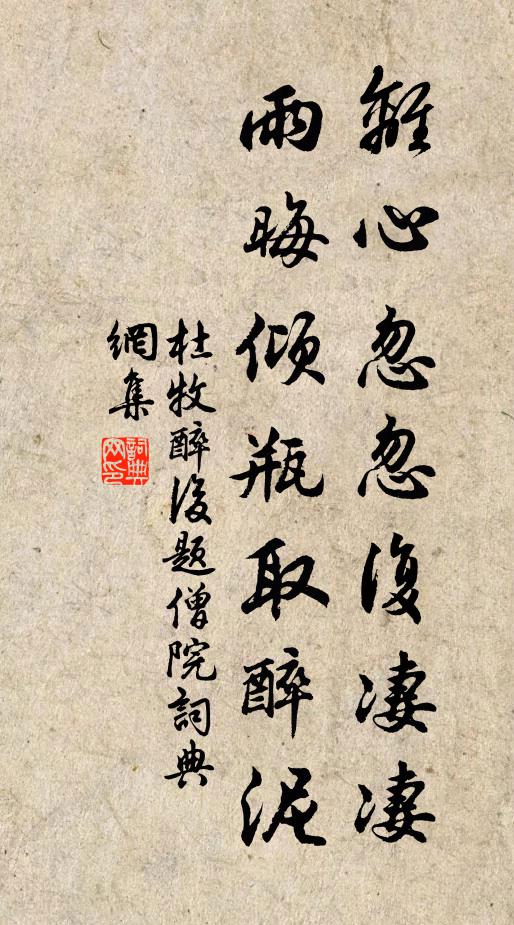 離心忽忽復凄凄
雨晦傾瓶取醉泥
杜牧醉後題僧院詞典
網集
詞典
网印